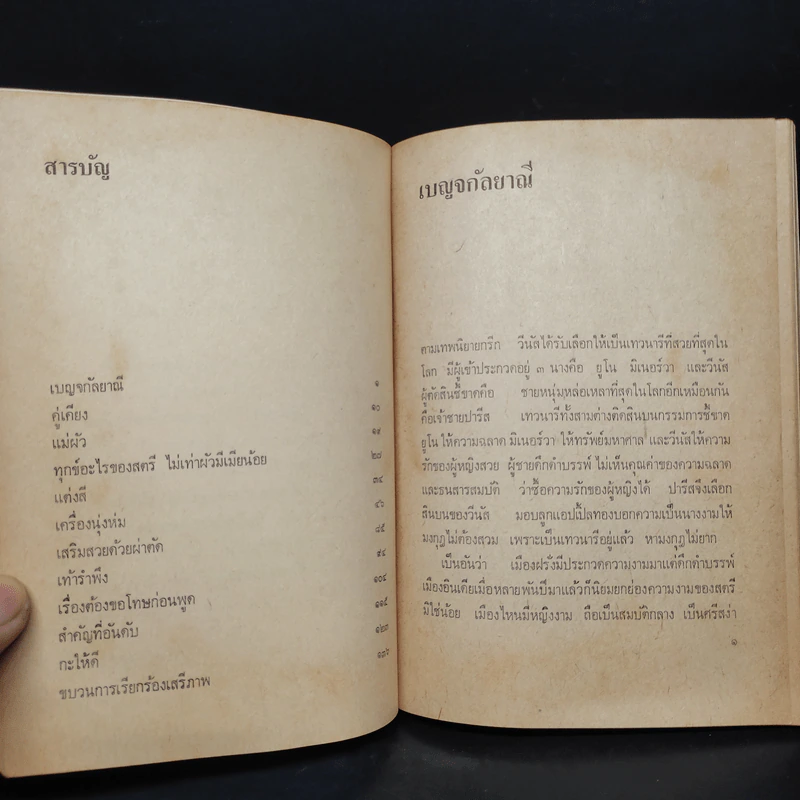 สารบัญ
เบญจกัลยาณี ๑
คู่เคียง ๑๐
แม่ผัว ๑๙
ทุกข์อะไรของสตรี ไม่เท่าผัวมีเมียน้อย ๒๗
แต่งสี ๓๔
เครื่องนุ่งห่ม ๔๖
เสริมสวยด้วยผ่าตัด ๘๕
เท้ารำพึง ๙๔
เรื่องต้องขอโทษก่อนพูด ๑๐๔
สำคัญที่อันดับ ๑๑๕
กะให้ดี ๑๒๓
ขบวนการเรียกร้องเสรีภาพ ๑๓๖
เบญจกัลยาณี
ตามเทพนิยายกรีก วีนัสได้รับเลือกให้เป็นเทวนารีที่สวยที่สุดใน
โลก มีผู้เข้าประกวดอยู่ ๓ นางคือ ยูโน มิเนอร์วา และวีนัส
ผู้ตัดสินชี้ขาดคือ ชายหนุ่มหล่อเหลาที่สุดในโลกอีกเหมือนกัน
คือเจ้าชายปารีส เทวนารีทั้งสามต่างติดสินบนกรรมการชี้ขาด
ยูโน ให้ความฉลาด มิเนอร์วา ให้ทรัพย์มหาศาล และวีนัสให้ความ
รักของผู้หญิงสวย ผู้ชายดึกดำบรรพ์ ไม่เห็นคุณค่าของความฉลาด
และธนสารสมบัติ ว่าซื้อความรักของผู้หญิงได้ ปารีสจึงเลือก
สินบนของวีนัส มอบลูกแอปเปิ้ลทองบอกความเป็นนางงามให้
มงกุฎไม่ต้องสวม เพราะเป็นเทวนารีอยู่แล้ว หามงกุฎไม่ยาก
เป็นอันว่า เมืองฝรั่งมีประกวดความงามมาแต่ดึกดำบรรพ์
เมืองอินเดียเมื่อหลายพันปีมาแล้วก็นิยมยกย่องความงามของสตรี
มิใช่น้อย เมืองไหนมีหญิงงาม ถือเป็นสมบัติกลาง เป็นศรีสง่า
๑